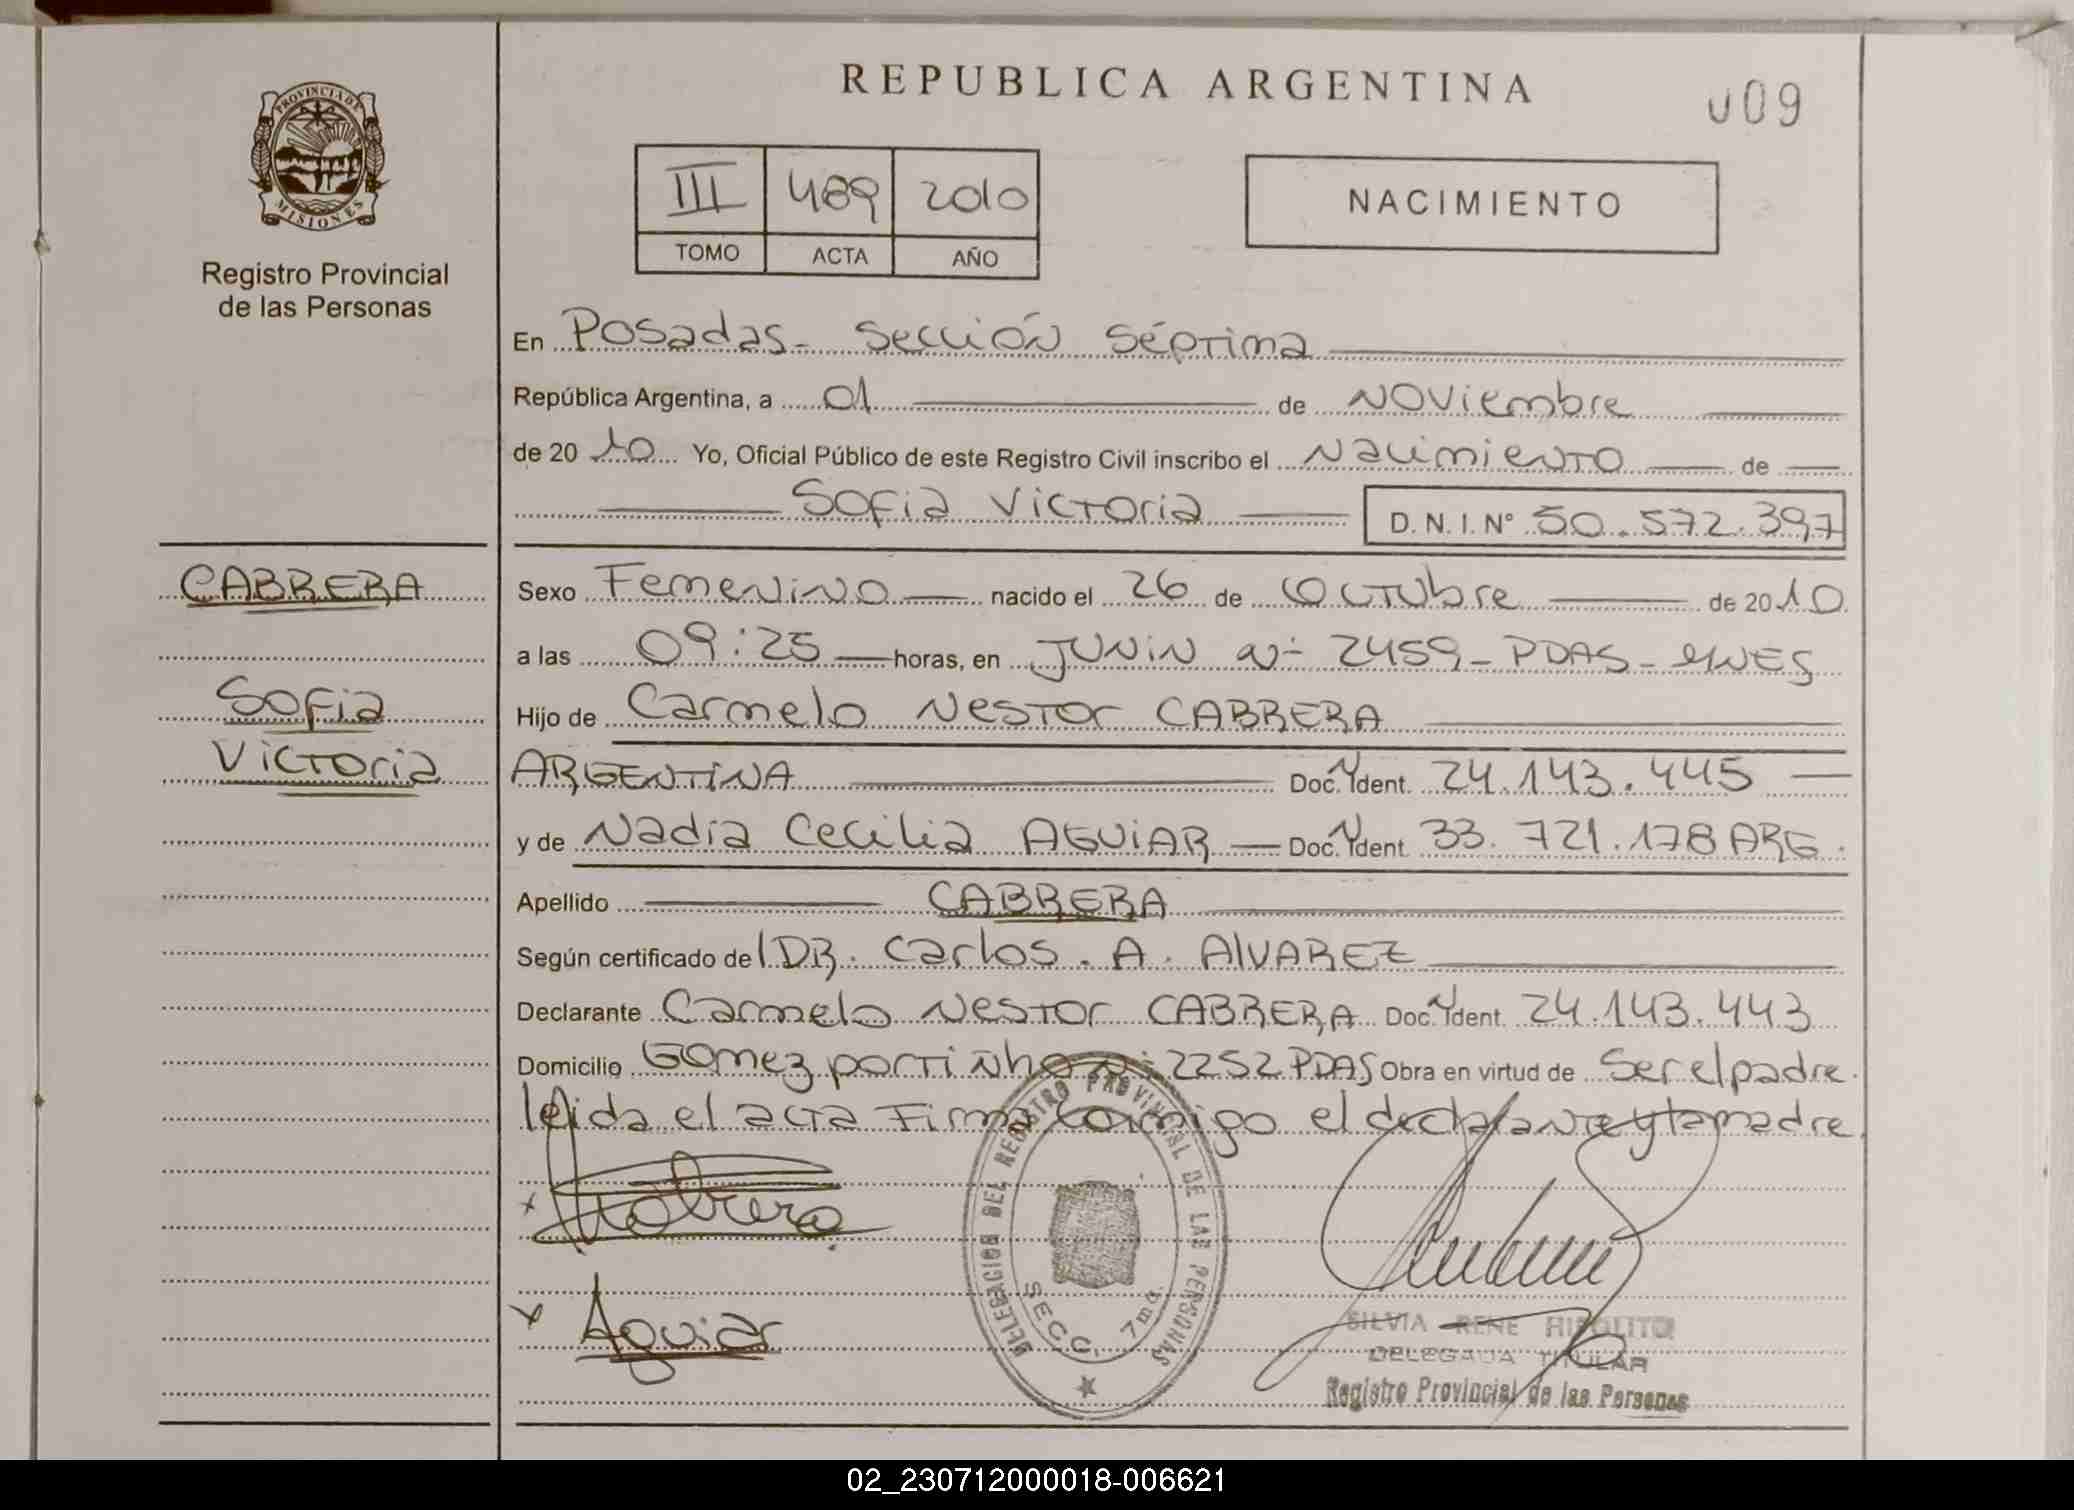 REPUBLICA ARGENTINA
009
PROVINCIA DE MISIONES
Registro Provincial
de las Personas
III 489 2010
TOMO ACTA AÑO
NACIMIENTO
En Posadas - Sección Séptima
República Argentina, a 01 de Noviembre
de 2010 Yo, Oficial Público de este Registro Civil inscribo el Nacimiento de
Sofia Victoria D. N. I. Nº 50.572.397
CABRERA
Sofia
Victoria
Sexo Femenino nacido el 26 de Octubre de 2010
a las 09:25 horas, en JUNIN Nº 2459 - PDAS - MNES
Hijo de Carmelo Nestor CABRERA
ARGENTINA Doc. Ident. 24.143.445
y de Nadia Cecilia AGUIAR Doc. Ident. 33.721.178 ARG.
Apellido CABRERA
Según certificado de DR. Carlos. A. AlVAREZ
Declarante Carmelo Nestor CABRERA Doc. Ident. 24.143.443
Domicilio Gomez portiñho Nº 2252 PDAS Obra en virtud de ser el padre.
leida el acta Firma conmigo el declarante y la madre.
x Cabrera
x Aguiar
DELEGACION DEL REGISTRO PROVINCIAL DE LAS PERSONAS
SECC. 7ma.
SILVIA RENE HIPOLITO
DELEGADA TITULAR
Registro Provincial de las Personas
02_230712000018-006621